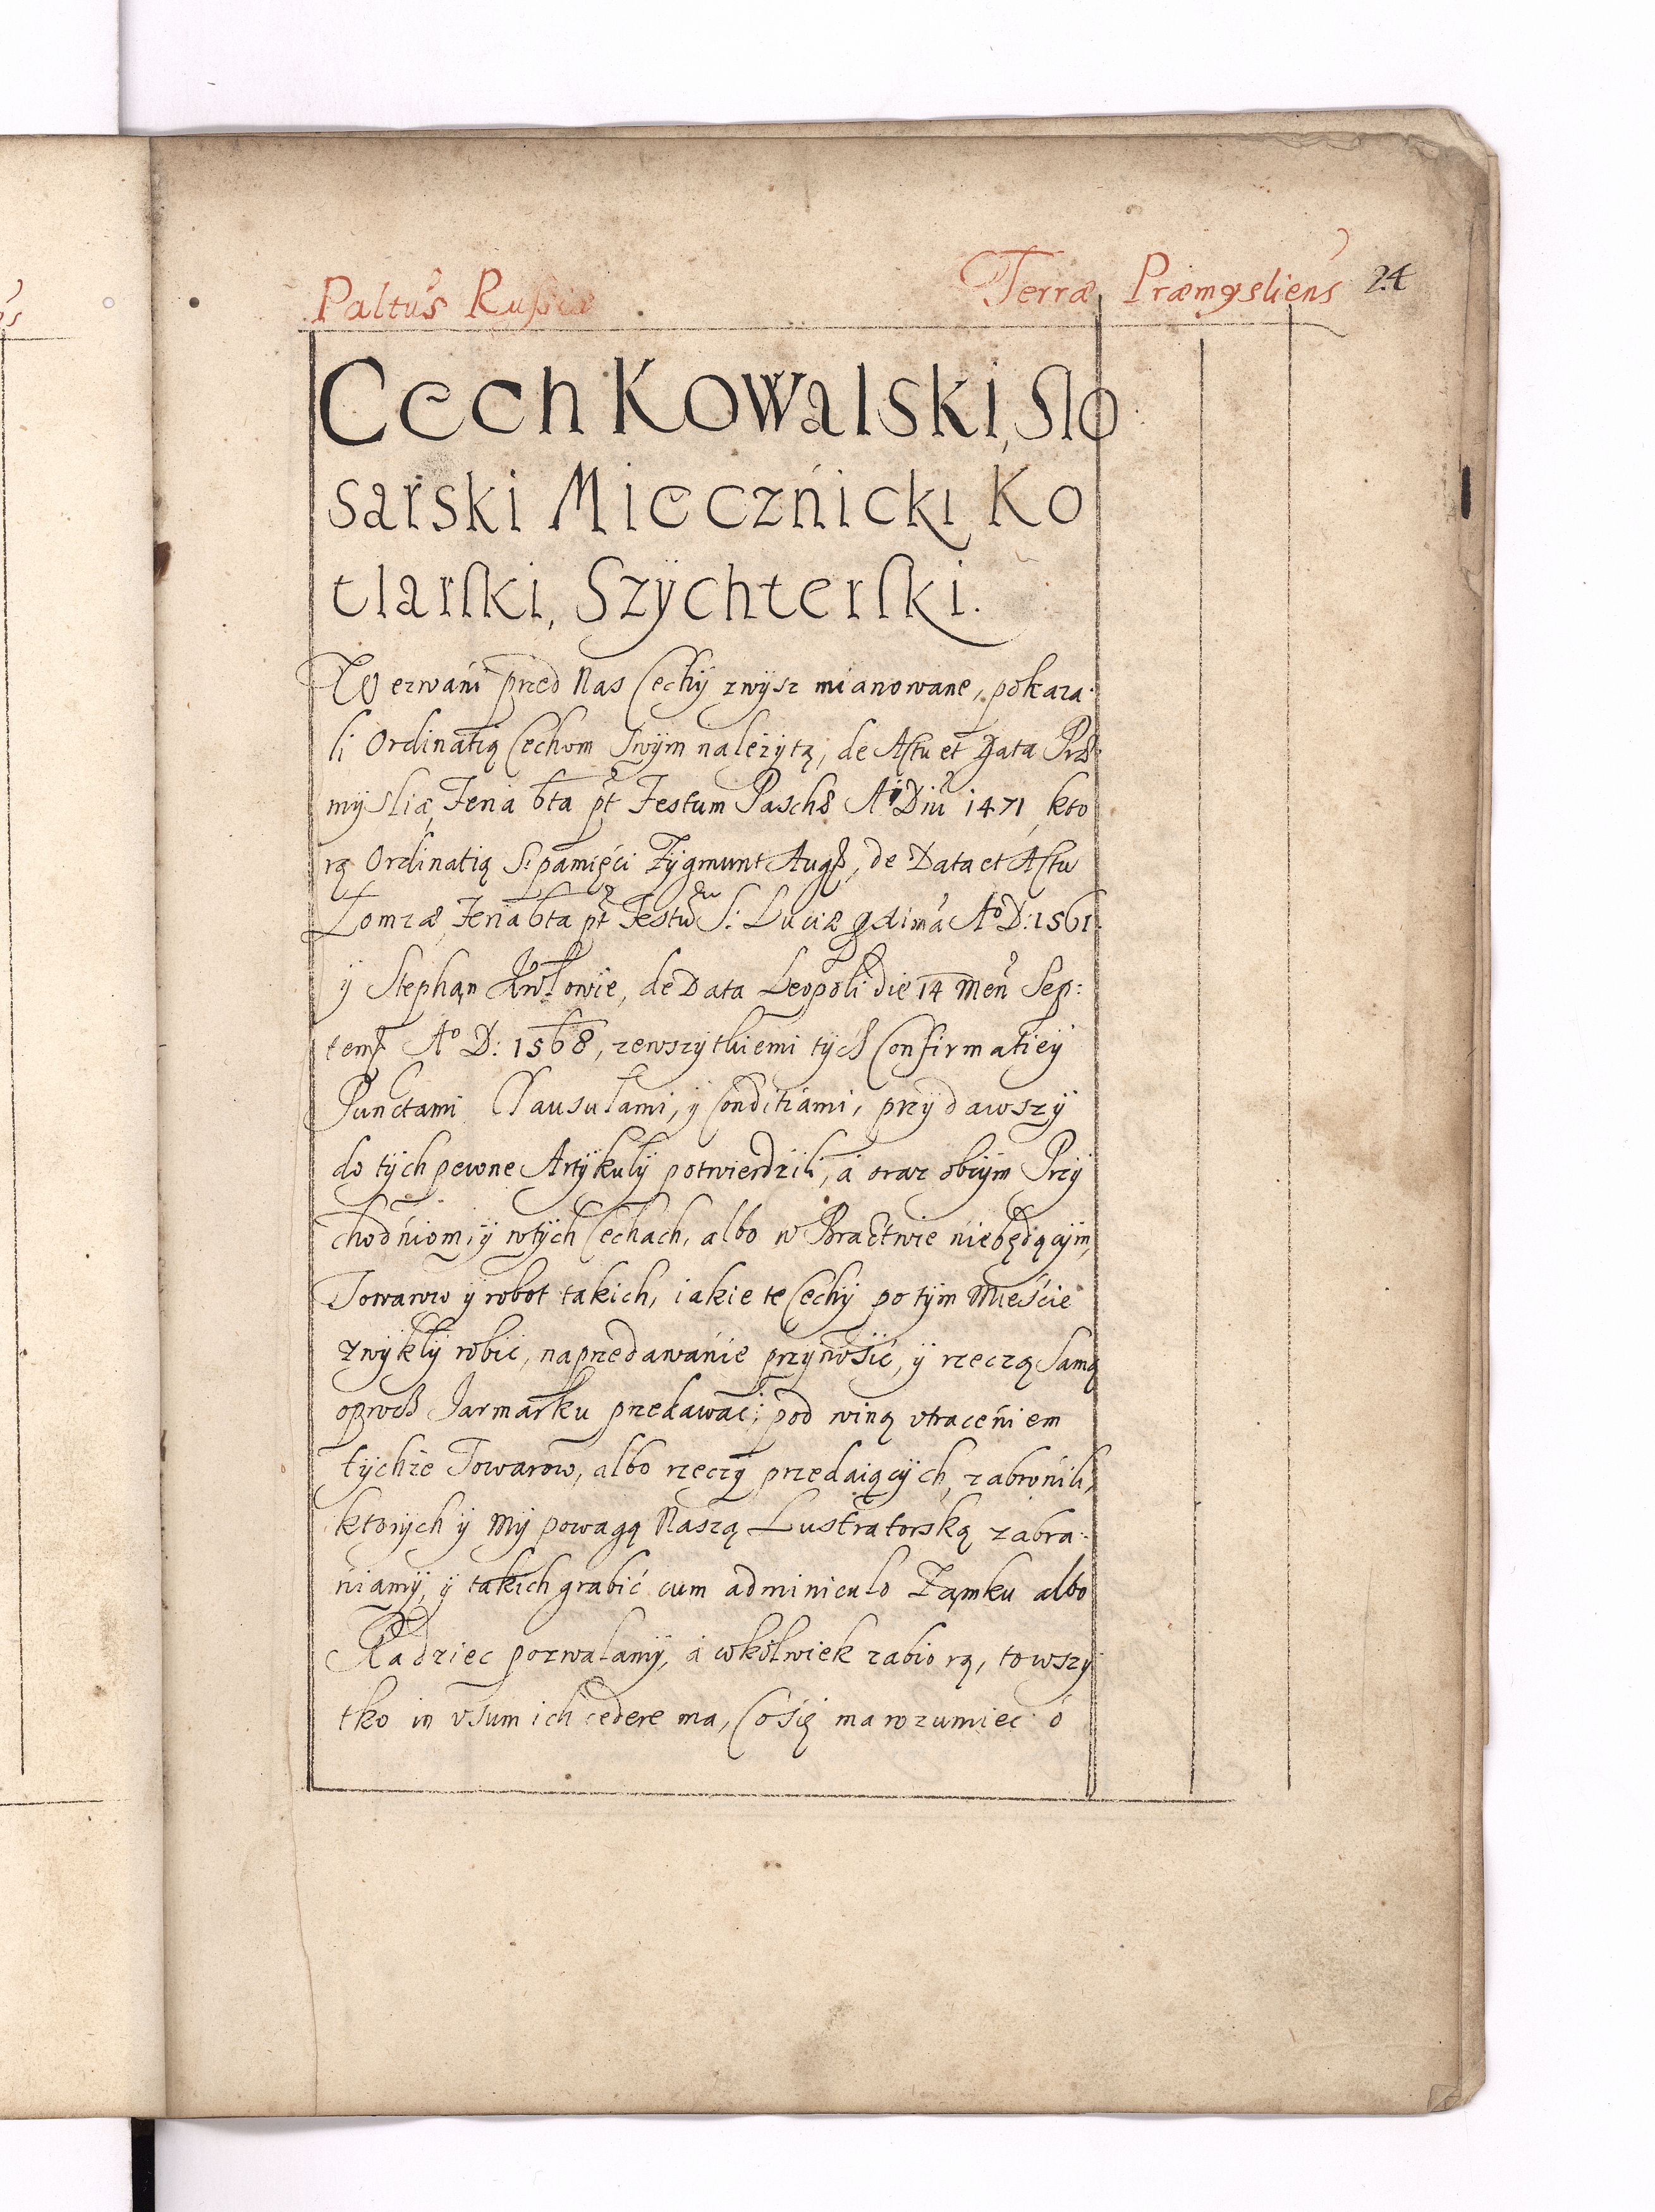 Paltus Russiæ Terræ Præmysliens 24
Cech Kowalski, Slo
sarski Miecznicki Ko
tlarski, Szychterski.
Wezwani przed Nas Cechy zwysz mianowane, pokaza-
li Ordinatią Cechom Swym należytą, de Actu et Data Præ-
mysliæ, Feria 6ta pt Festum Paschæ Ao Dni 1471, kto
rą Ordinatią S. pamięci Zygmunt Aug, de Data et Actu
Lomzæ, Feria 6ta pt Festu S: Luciæ Ao D: 1561.
y Stephan Krolowie, de Data Leopoli die 14 Men Sep:
temb Ao D: 1568, zewszytkiemi tych Confirmatiey
Punctami Clausulami, y Conditiami, przydawszy
do tych pewne Artykuly potwierdzili, a oraz obcym Przy
chodniom, y wtych Cechach, albo w Bractwie niebędącym,
Towarow y robot takich, iakie te Cechy po tym Mieście
zwykly robic, naprzedawanie przynosić, y rzeczą Samą
oprocz Jarmarku przedawać; pod winą utraceniem
tychże Towarow, albo rzeczy przedaiących, zabronili,
ktorych y My powagą Naszą Lustratorską zabra-
niamy, y takich grabić cum adminiculo Zamku albo
Radziec pozwalamy, a cokolwiek zabiorą, to wszy
tko in usum ich cedere ma, Co się ma rozumiec o